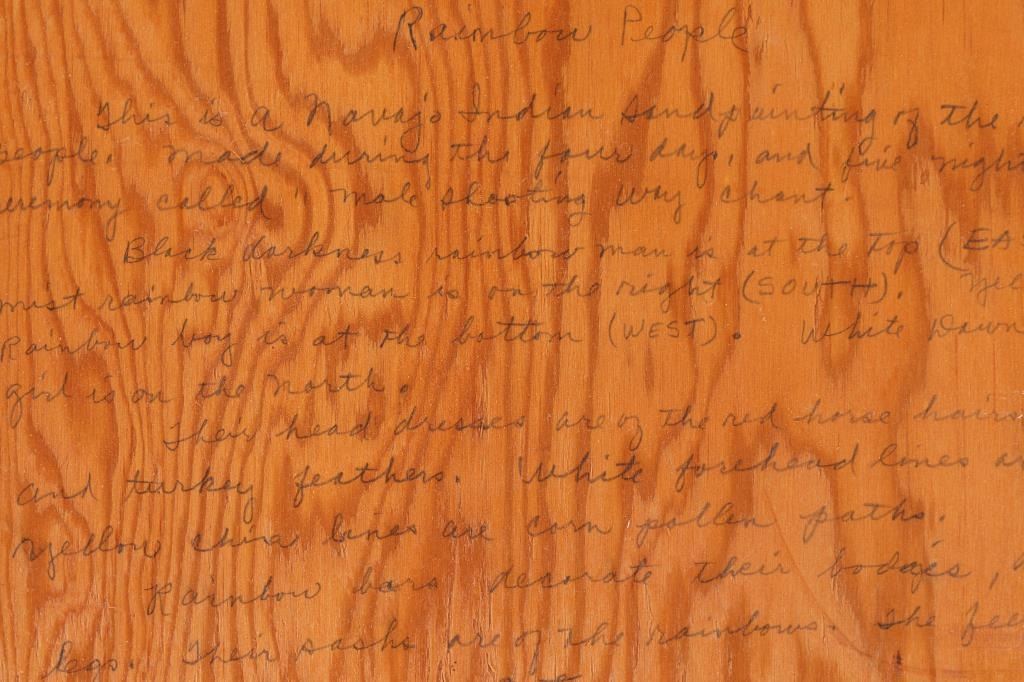 Rainbow People
This is a Navajo Indian Sandpainting of the
people. Made during the four days, and five night
eremony called " Male Shooting Way Chant.
Black darkness rainbow man is at the Top (EA
mist rainbow woman is on the right (SOUTH). Yel
Rainbow boy is at the bottom (WEST). White Dawn
girl is on the North.
Their head dresses are of the red horse hairs
and turkey feathers. White forehead lines a
Yellow chin lines are corn pollen paths.
Rainbow bars decorate their bodies,
legs. Their sashs are of the rainbows. The fee